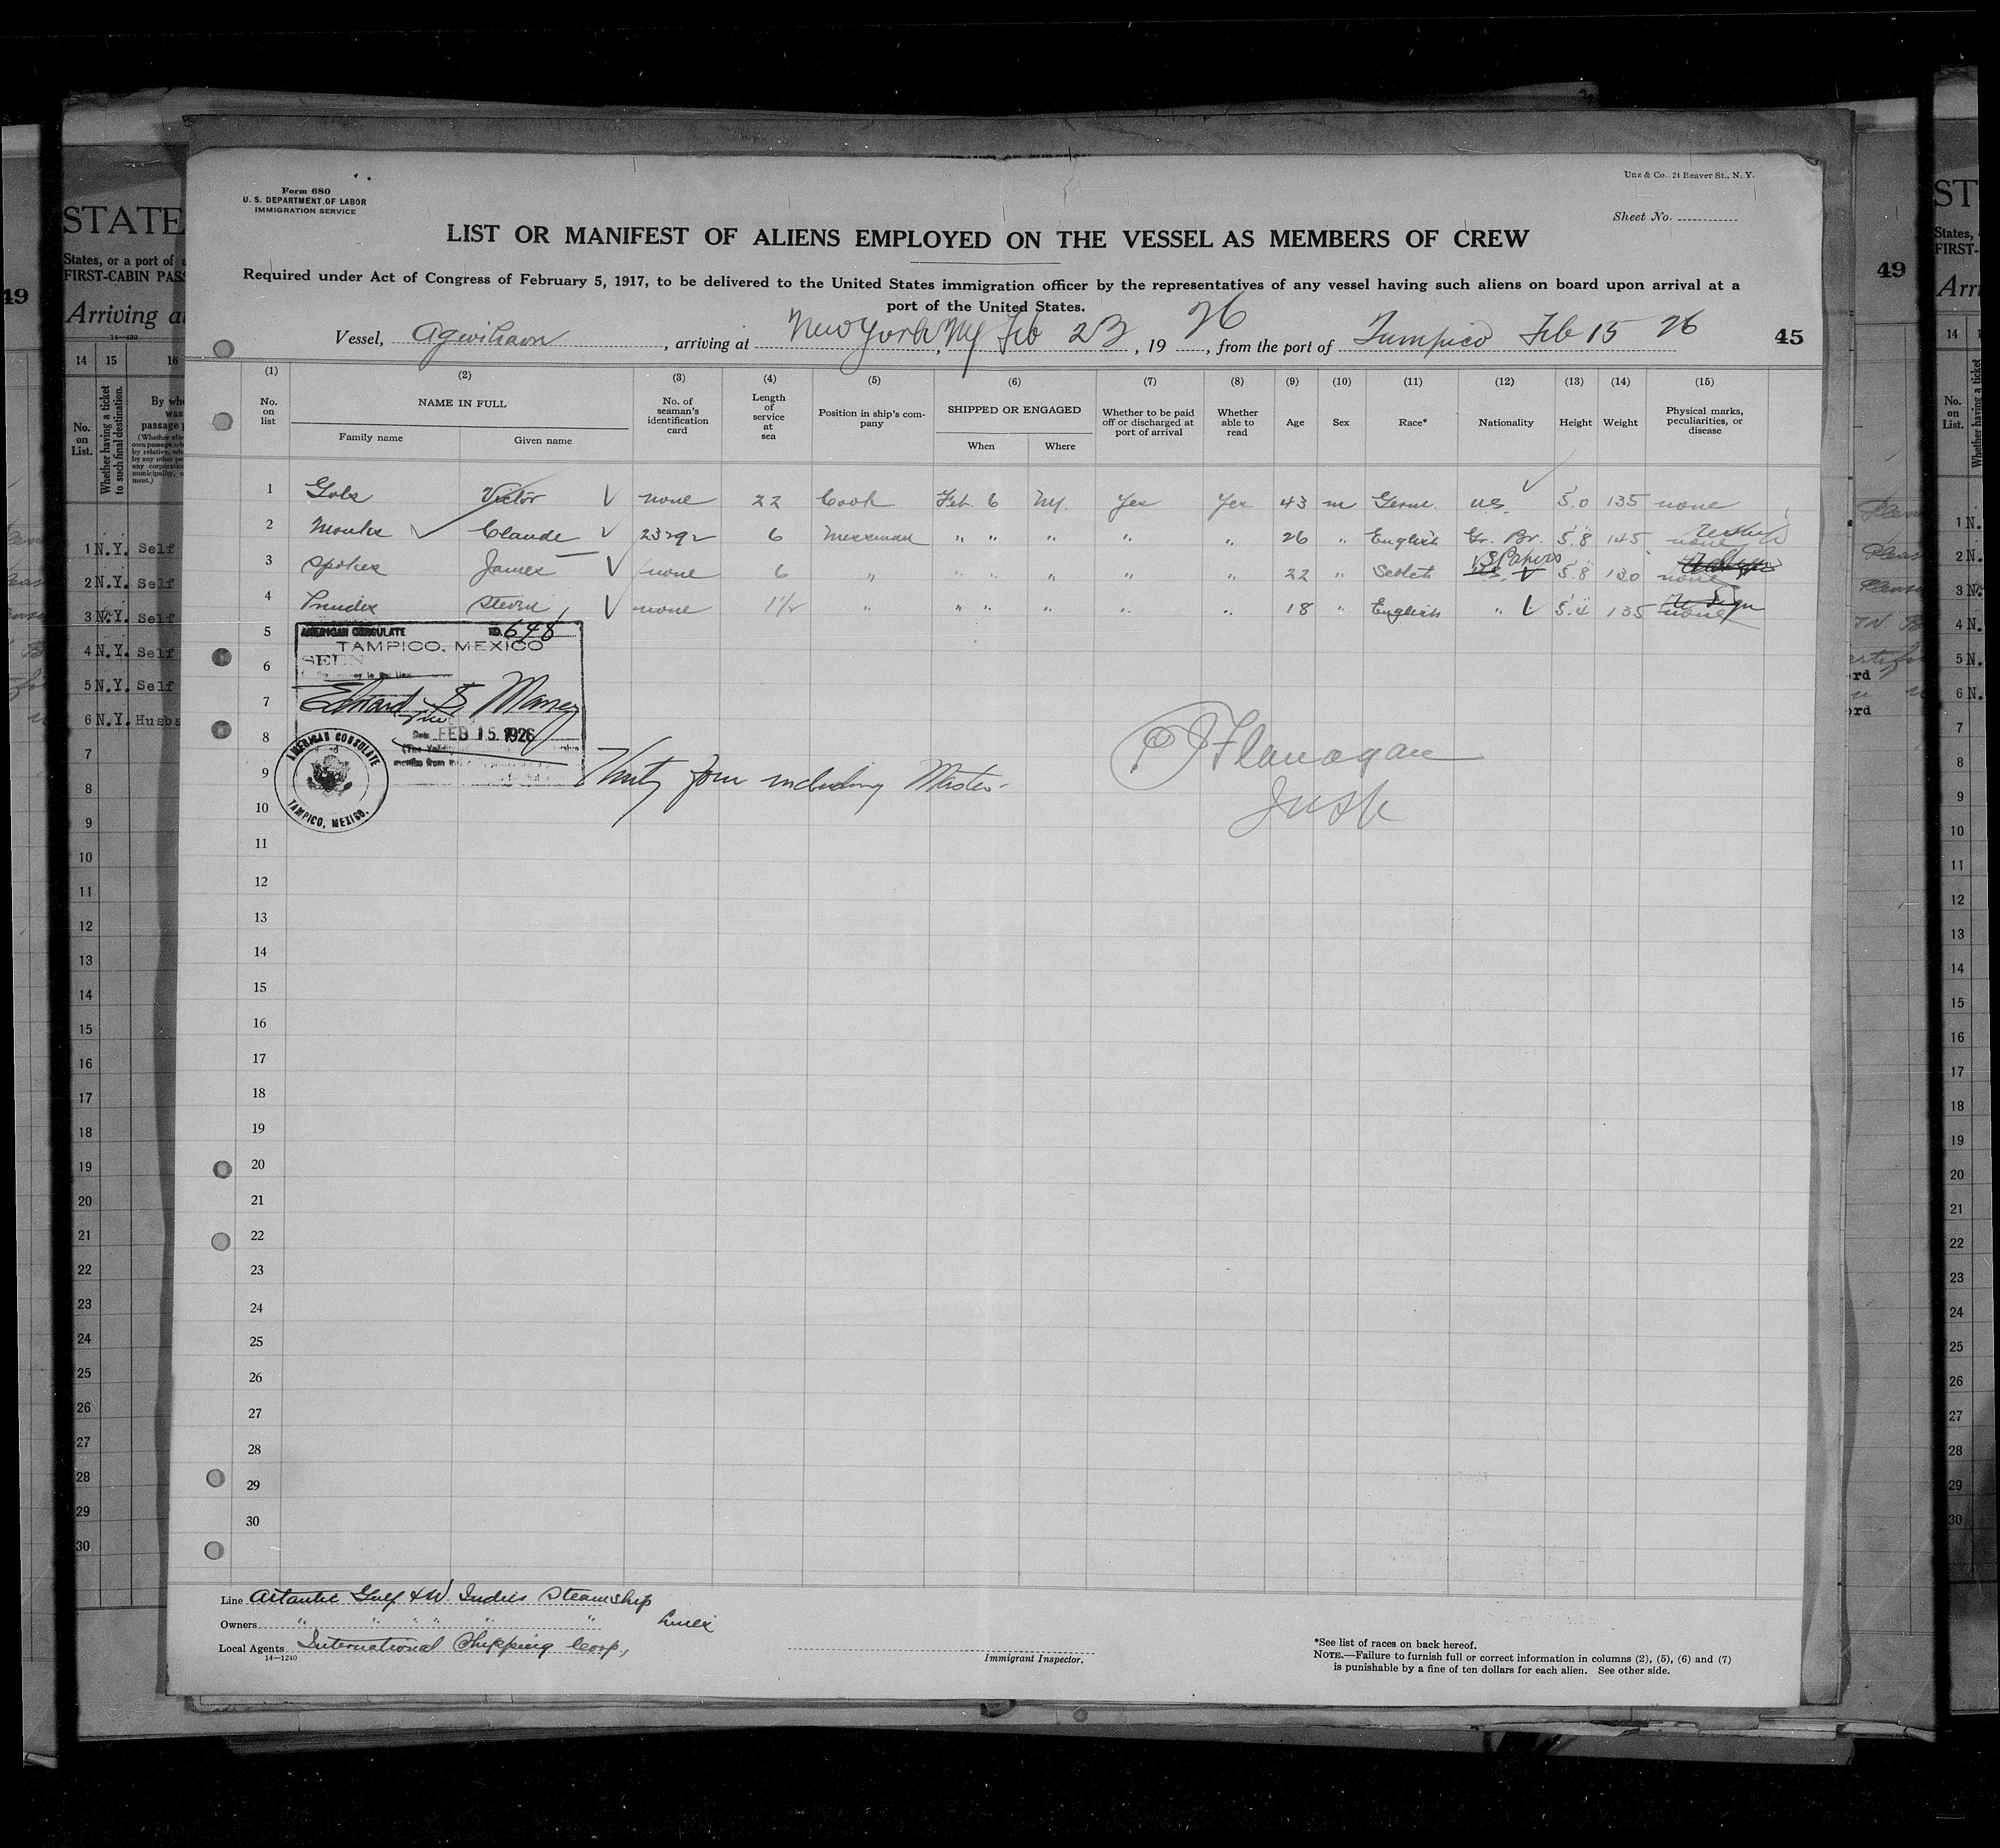 Form 680
U. S. DEPARTMENT OF LABOR
IMMIGRATION SERVICE
Unz & Co., 24 Beaver St., N. Y.
Sheet No.
LIST OR MANIFEST OF ALIENS EMPLOYED ON THE VESSEL AS MEMBERS OF CREW
Required under Act of Congress of February 5, 1917, to be delivered to the United States immigration officer by the representatives of any vessel having such aliens on board upon arrival at a
port of the United States.
Vessel, arriving at New York, NY Feb 23, 1926, from the port of Tampico Feb 15 26
45
(1) (2) (3) (4) (5) (6) (7) (8) (9) (10) (11) (12) (13) (14) (15)
No. on list
NAME IN FULL
Family name Given name
No. of seaman's identification card
Length of service at sea
Position in ship's company
SHIPPED OR ENGAGED
When Where
Whether to be paid off or discharged at port of arrival
Whether able to read
Age
Sex
Race*
Nationality
Height
Weight
Physical marks, peculiarities, or disease
1 Victor none 22 Cook Feb. 6 NY. Yes Yes 43 m Germ. U.S. 5.0 135 none
2 Claude 6 Messman " " " " " 26 " English Gr. Br. 5.8 145 none
3 Spokes James none 6 " " " " " " 22 " 5.8 130 none
4 none 1 1/2 " " " " " " 18 " English " 5.4 135 none
5
6
7
8
9
10
11
12
13
14
15
16
17
18
19
20
21
22
23
24
25
26
27
28
29
30
AMERICAN CONSULATE NO. 648
TAMPICO, MEXICO
SEEN
Edward S. Maney
Date FEB 15 1926
AMERICAN CONSULATE
TAMPICO, MEXICO.
Thirty four including Master
P J Flanagan
Insp
Line Atlantic Gulf & W. Indies Steamship
Owners " " " " " " Lines
Local Agents International Shipping Corp,
14—1240
Immigrant Inspector.
*See list of races on back hereof.
NOTE.—Failure to furnish full or correct information in columns (2), (5), (6) and (7)
is punishable by a fine of ten dollars for each alien. See other side.
STATE
States, or a port of
FIRST-CABIN PAS
Arriving a
14 15 16
No. on List.
Whether having a ticket to such final destination.
1 N.Y. Self
2 N.Y. Self
3 N.Y. Self
4 N.Y. Self
5 N.Y. Self
6 N.Y. Husba
49
49
ST
States,
FIRST-
Arri